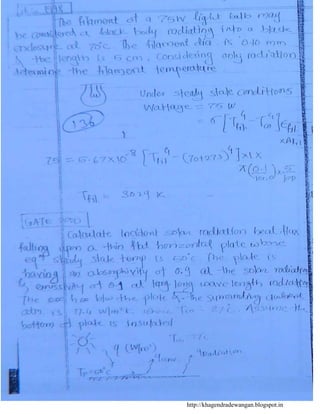 The filament of a 75W light bulb may
be considered a black body radiating into a black
enclosure at 70°c. The filament dia. is 0.10 mm
& the length is 5 cm. Considering only radiation
determine the filament temperature
Under steady state conditions
Wattage = 75 W
136
= σ [T⁴fil. - T∞⁴] εfil.
× Afil.
75 = 5.67×10⁻⁸ [T⁴fil. - (70+273)⁴] ×1×
π(0.1/1000)×5/100
Tfil. = 3029 K
GATE
Calculate Incident solar radiation heat flux
falling upon a thin flat horizontal plate whose
eqm steady state temp is 60°C. The plate is
having an absorptivity of 0.9 at the solar radiation
& emissivity of 0.1 at long wave length radiation
The between the plate & the surrounding ambient
is 17.4 W/m²K T∞ = Assume the
bottom of plate is insulated
T∞
q (W/m²)
qconv. qradiation
http://khagendradewangan.blogspot.in